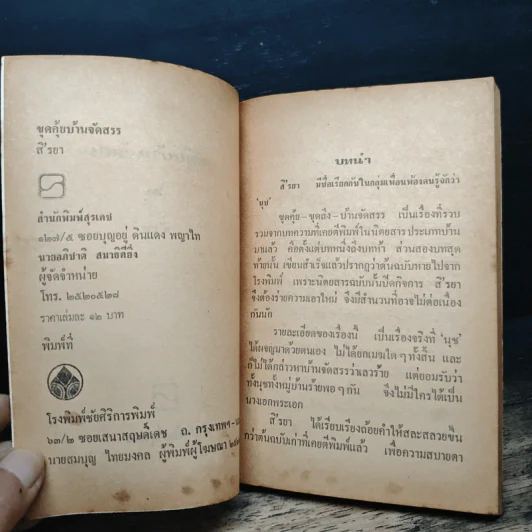 ขุดคุ้ยบ้านจัดสรร
สี'รยา
สำนักพิมพ์สุรเดช
๑๒๗/๕ ซอยบุญอยู่ ดินแดง พญาไท
นายอภิชาติ สมาธิดียิ่ง
ผู้จัดจำหน่าย
โทร. ๒๕๒๐๕๒๘
ราคาเล่มละ ๑๒ บาท
พิมพ์ที่
โรงพิมพ์ชัยศิริการพิมพ์
๖๓/๒ ซอยเสนาสฤษดิ์เดช ถ. กรุงเทพฯ-
นายสมบุญ ไทยมงคล ผู้พิมพ์ผู้โฆษณา
บทนำ
สี'รยา มีชื่อเรียกกันในกลุ่มเพื่อนพ้องคนรู้จักว่า
'นุช'
ขุดคุ้ย-ขุดถึง-บ้านจัดสรร เป็นเรื่องที่รวบ
รวมจากบทความที่เคยตีพิมพ์ในนิตยสารประเภทบ้าน
มาแล้ว คือตั้งแต่บทหนึ่งถึงบทห้า ส่วนสองบทสุด
ท้ายนั้น เขียนสำเร็จแล้วปรากฏว่าต้นฉบับหายไปจาก
โรงพิมพ์ เพราะนิตยสารฉบับนั้นปิดกิจการ สี'รยา
จึงต้องร่ายความเอาใหม่ ซึ่งมีสำนวนที่อาจไม่ต่อเนื่อง
กันนัก
รายละเอียดของเรื่องนี้ เป็นเรื่องจริงที่ 'นุช'
ได้ผจญมาด้วยตนเอง ไม่ได้ยกเมฆใดๆทั้งสิ้น และ
ก็ไม่ได้กล่าวหาบ้านจัดสรรว่าเลวร้าย แต่ยอมรับว่า
ทั้งนุชทั้งหมู่บ้านร้ายพอๆกัน ซึ่งไม่มีใครได้เป็น
นางเอกพระเอก
สี'รยา ได้เรียบเรียงถ้อยคำให้สละสลวยขึ้น
กว่าต้นฉบับเก่าที่เคยตีพิมพ์แล้ว เพื่อความสบายตา